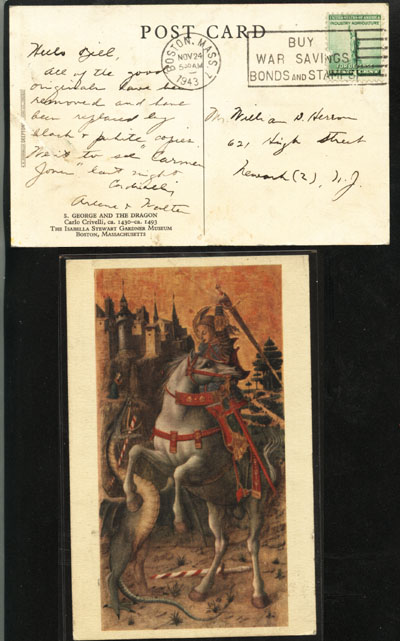 POST CARD
BOSTON, MASS.
NOV 24
5 30 AM
1943
BUY
WAR SAVINGS
BONDS AND STAMPS
UNITED STATES OF AMERICA
INDUSTRY AGRICULTURE
FOR DEFENSE
Hello Bill,
All of the good
originals have been
removed and have
been replaced by
black & white copies.
Went to see "Carmen
Jones" last night
Cordially,
Arlene & Walter
Mr. William D. Herron
621 High Street
Newark (2), N.J.
S. GEORGE AND THE DRAGON
Carlo Crivelli, ca. 1430-ca. 1493
THE ISABELLA STEWART GARDNER MUSEUM
BOSTON, MASSACHUSETTS